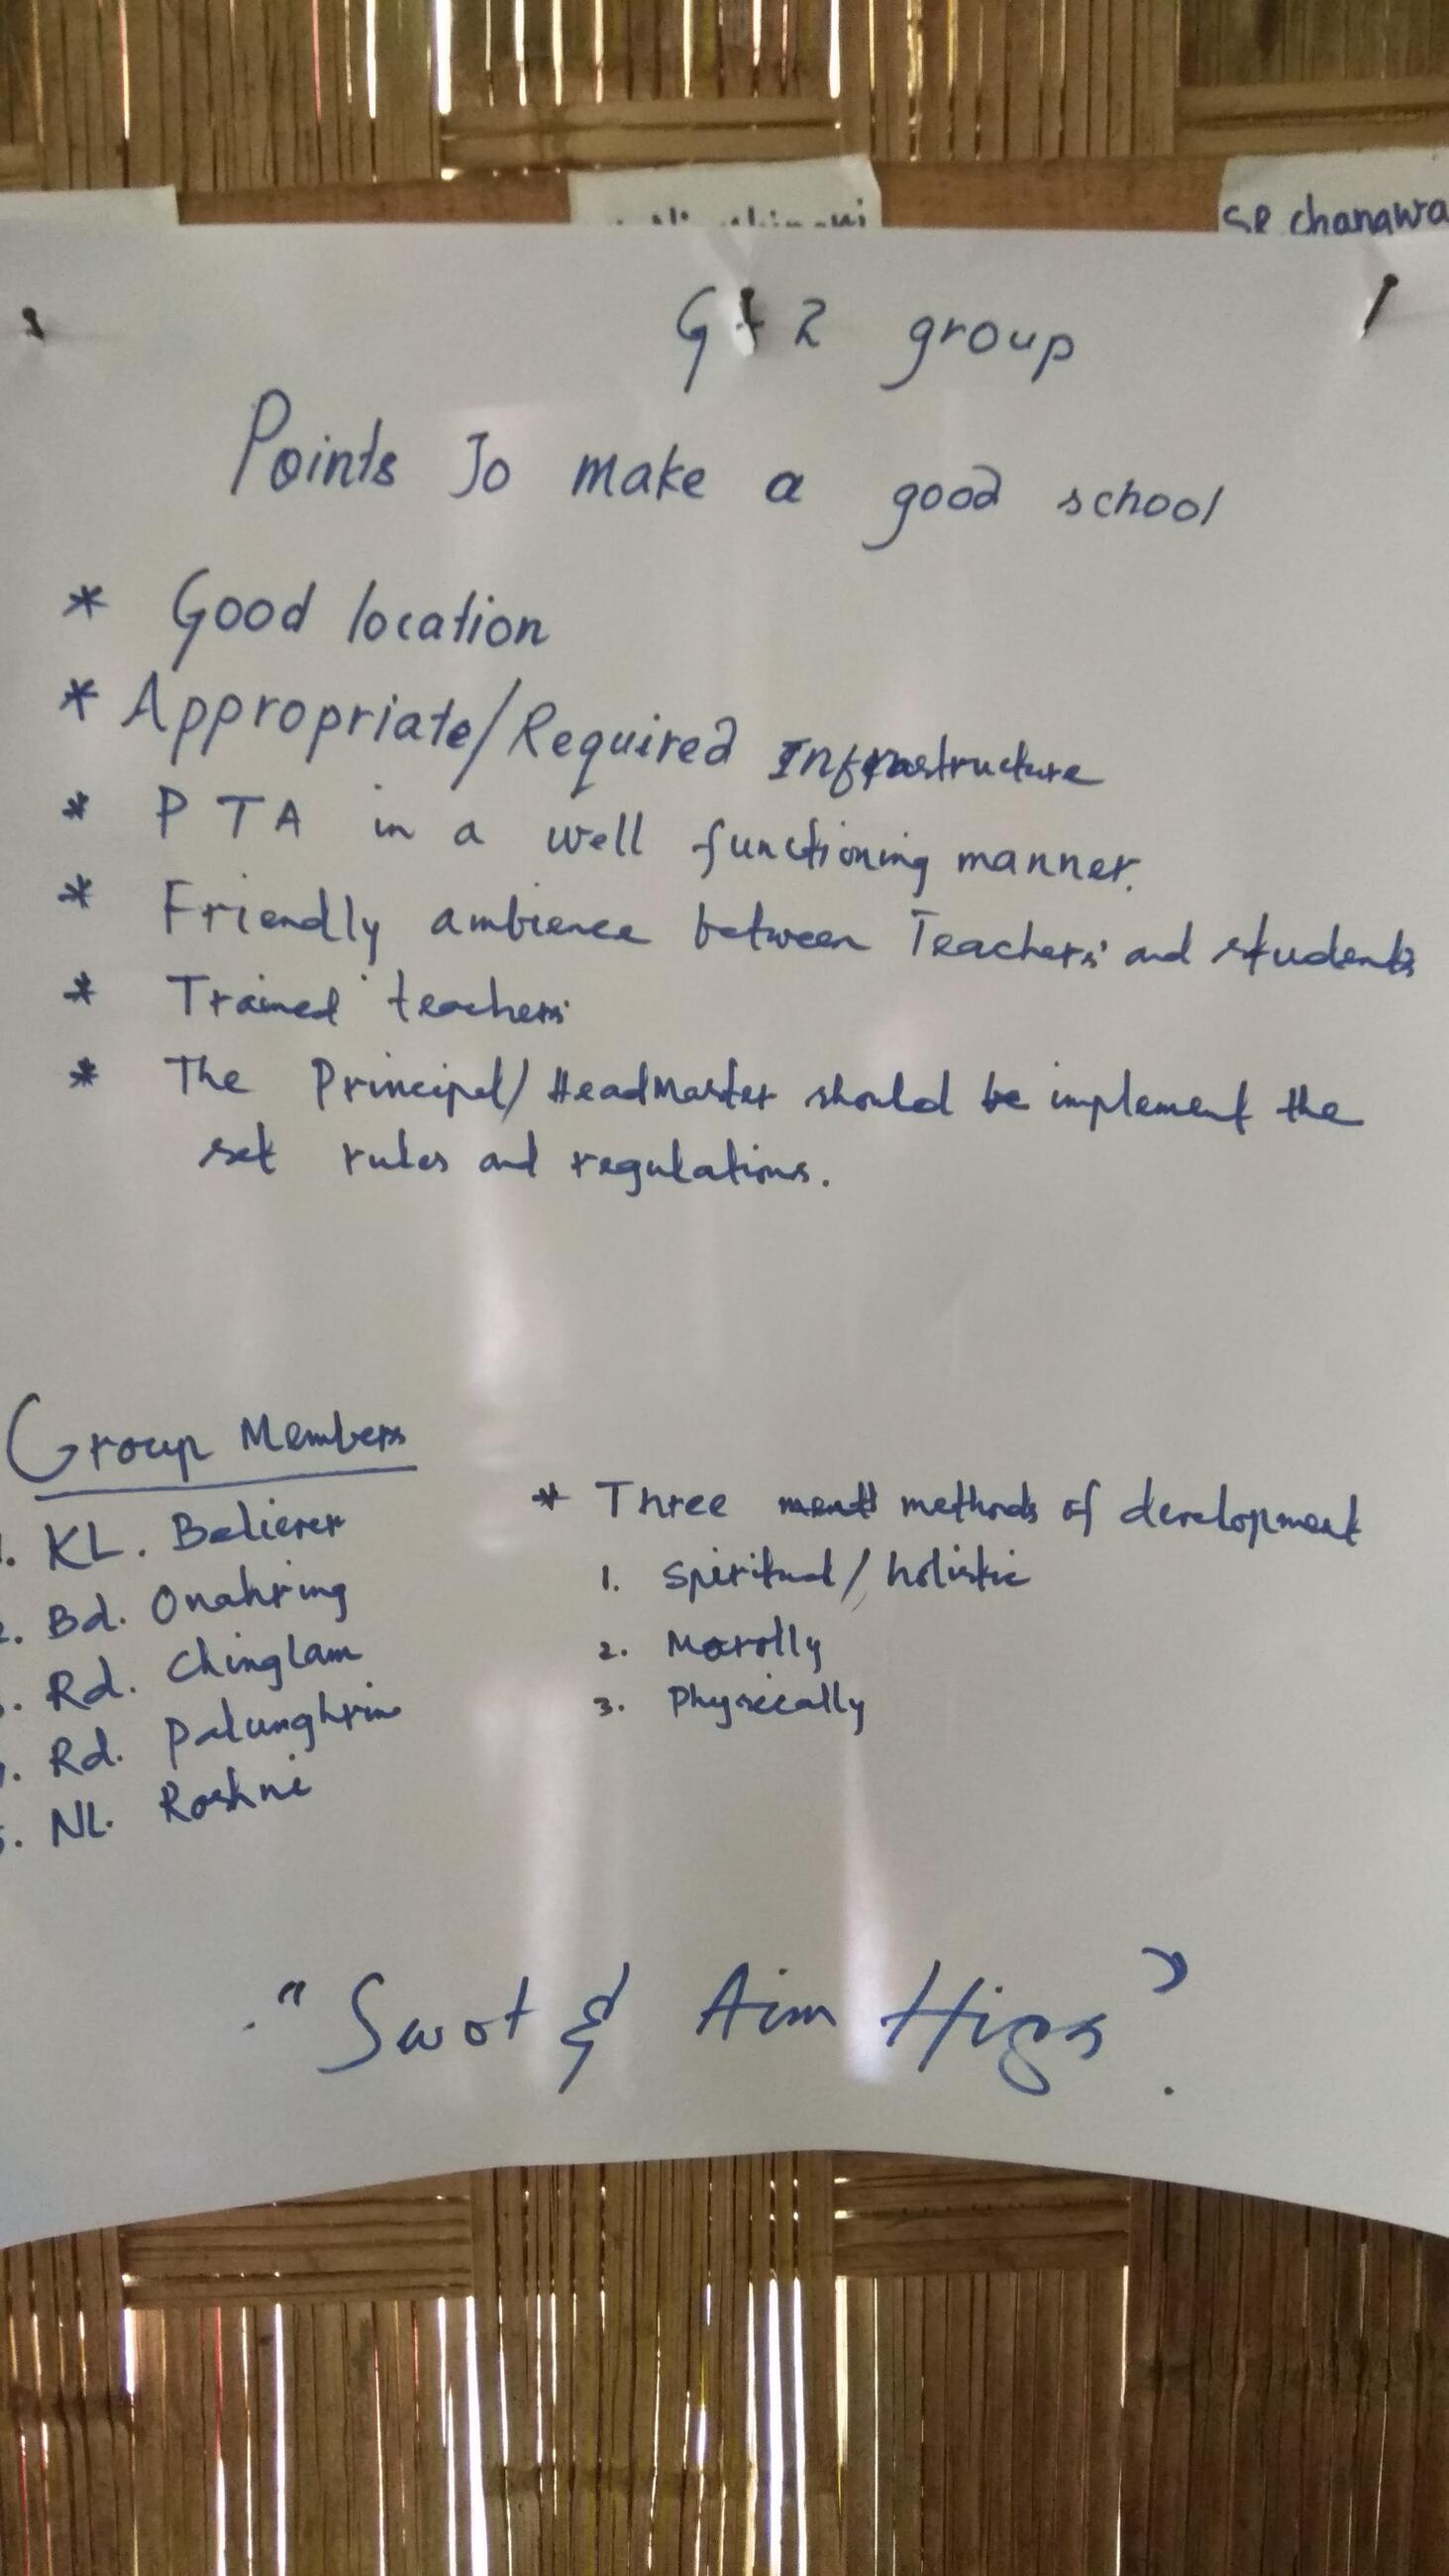 SR chanawa
G+2 group
Points To make a good school
* Good location
* Appropriate/Required Infrastructure
* PTA in a well functioning manner.
* Friendly ambience between Teachers and students
* Trained teachers
* The Principal/HeadMaster should be implement the
set rules and regulations.
Group Members
KL. Believer
Bd. Onahring
Rd. Chinglam
Rd. Palunghrin
5. NL. Roshni
* Three methods of development
1. Spiritual/holistic
2. Morally
3. Physically
"Swot & Aim High".